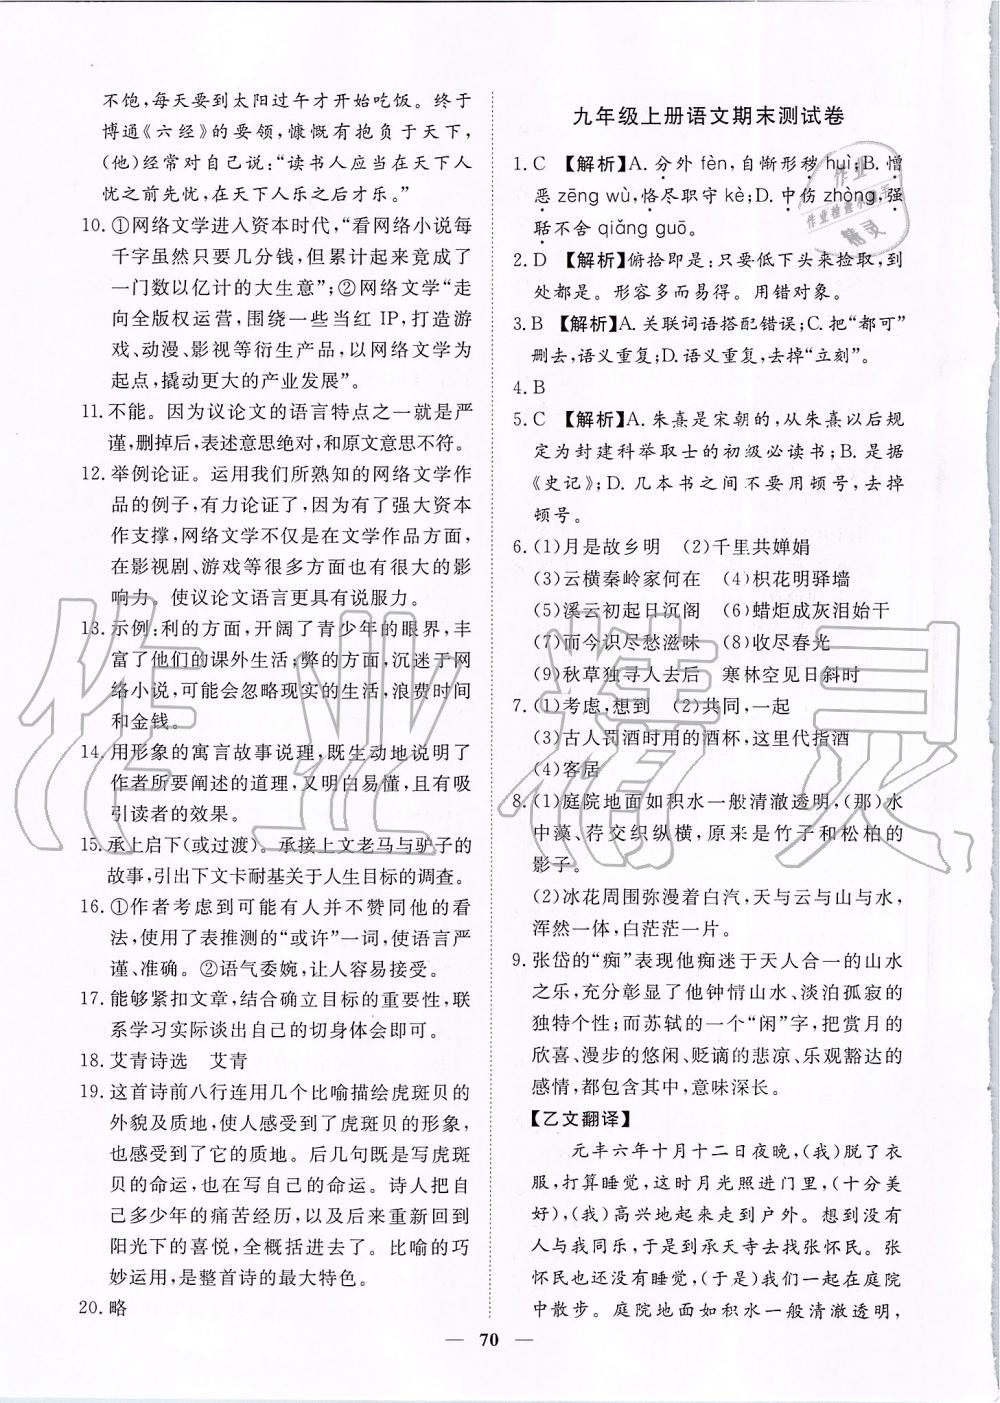 不饱,每天要到太阳过午才开始吃饭。终于
博通《六经》的要领,慷慨有抱负于天下,
(他)经常对自己说:“读书人应当在天下人
忧之前先忧,在天下人乐之后才乐。”
10. ①网络文学进入资本时代,“看网络小说每
千字虽然只要几分钱,但累计起来竟成了
一门数以亿计的大生意”;②网络文学“走
向全版权运营,围绕一些当红 IP,打造游
戏、动漫、影视等衍生产品,以网络文学为
起点,撬动更大的产业发展”。
11. 不能。因为议论文的语言特点之一就是严
谨,删掉后,表述意思绝对,和原文意思不符。
12. 举例论证。运用我们所熟知的网络文学作
品的例子,有力论证了,因为有了强大资本
作支撑,网络文学不仅是在文学作品方面,
在影视剧、游戏等很多方面都有很大的影
响力。使议论文语言更具有说服力。
13. 示例:利的方面,开阔了青少年的眼界,丰
富了他们的课外生活;弊的方面,沉迷于网
络小说,可能会忽略现实的生活,浪费时间
和金钱。
14. 用形象的寓言故事说理,既生动地说明了
作者所要阐述的道理,又明白易懂,且有吸
引读者的效果。
15. 承上启下(或过渡)。承接上文老马与驴子的
故事,引出下文卡耐基关于人生目标的调查。
16. ①作者考虑到可能有人并不赞同他的看
法,使用了表推测的“或许”一词,使语言严
谨、准确。②语气委婉,让人容易接受。
17. 能够紧扣文章,结合确立目标的重要性,联
系学习实际谈出自己的切身体会即可。
18. 艾青诗选 艾青
19. 这首诗前八行连用几个比喻描绘虎斑贝的
外貌及质地,使人感受到了虎斑贝的形象,
也感受到了它的质地。后几句既是写虎斑
贝的命运,也在写自己的命运。诗人把自
己多少年的痛苦经历,以及后来重新回到
阳光下的喜悦,全概括进去了。比喻的巧
妙运用,是整首诗的最大特色。
20. 略
九年级上册语文期末测试卷
1. C 【解析】A. 分外 fèn,自惭形秽 huì;B. 憎
恶 zēng wù,恪尽职守 kè;D. 中伤 zhòng,强
聒不舍 qiǎng guō。
2. D 【解析】俯拾即是:只要低下头来捡取,到
处都是。形容多而易得。用错对象。
3. B 【解析】A. 关联词语搭配错误;C. 把“都可”
删去,语义重复;D. 语义重复,去掉“立刻”。
4. B
5. C 【解析】A. 朱熹是宋朝的,从朱熹以后规
定为封建科举取士的初级必读书;B. 是据
《史记》;D. 几本书之间不要用顿号,去掉
顿号。
6. (1)月是故乡明 (2)千里共婵娟
(3)云横秦岭家何在 (4)枳花明驿墙
(5)溪云初起日沉阁 (6)蜡炬成灰泪始干
(7)而今识尽愁滋味 (8)收尽春光
(9)秋草独寻人去后 寒林空见日斜时
7. (1)考虑,想到 (2)共同,一起
(3)古人罚酒时用的酒杯,这里代指酒
(4)客居
8. (1)庭院地面如积水一般清澈透明,(那)水
中藻、荇交织纵横,原来是竹子和松柏的
影子。
(2)冰花周围弥漫着白汽,天与云与山与水,
浑然一体,白茫茫一片。
9. 张岱的“痴”表现他痴迷于天人合一的山水
之乐,充分彰显了他钟情山水、淡泊孤寂的
独特个性;而苏轼的一个“闲”字,把赏月的
欣喜、漫步的悠闲、贬谪的悲凉、乐观豁达的
感情,都包含其中,意味深长。
【乙文翻译】
元丰六年十月十二日夜晚,(我)脱了衣
服,打算睡觉,这时月光照进门里,(十分美
好),(我)高兴地起来走到户外。想到没有
人与我同乐,于是到承天寺去找张怀民。张
怀民也还没有睡觉,(于是)我们一起在庭院
中散步。庭院地面如积水一般清澈透明,
— 70 —
作业
作业检查小能手
精灵
作业精灵